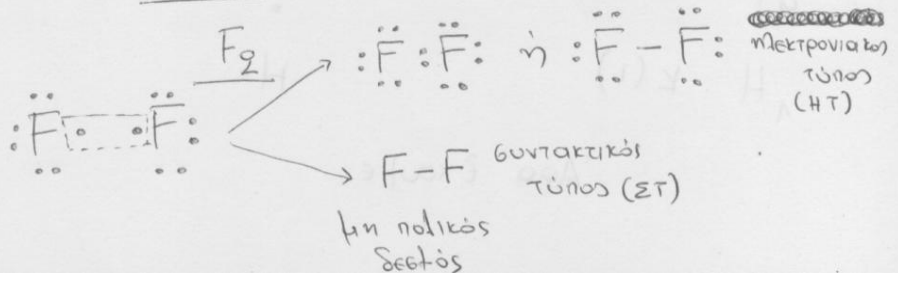 F₂
:F:F: ή :F-F: ηλεκτρονιακός
τύπος
(ΗΤ)
:F· ·F:
F-F συντακτικός
τύπος (ΣΤ)
μη πολικός
δεσμός